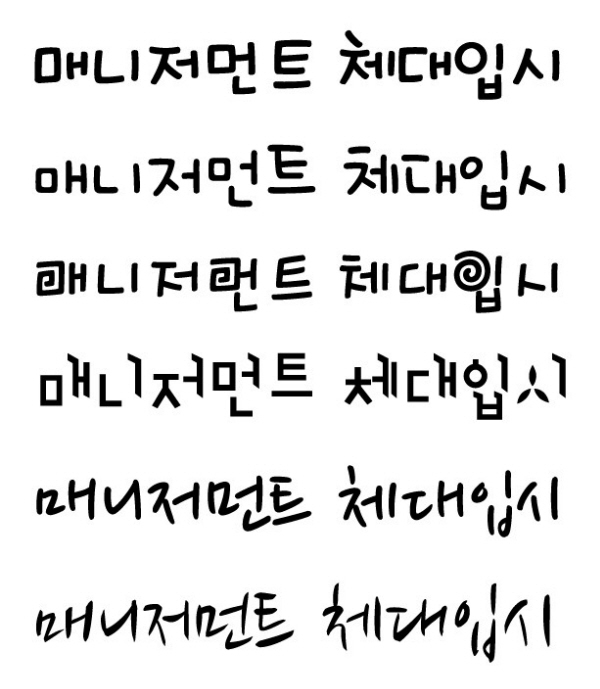 매니저먼트 체대입시
매니저먼트 체대입시
매니저먼트 체대입시
매니저먼트 체대입시
매니저먼트 체대입시
매니저먼트 체대입시